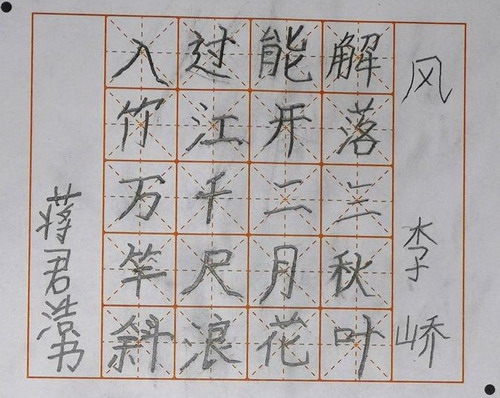 风 李峤
解落三秋叶
能开二月花
过江千尺浪
入竹万竿斜
蒋君浩书